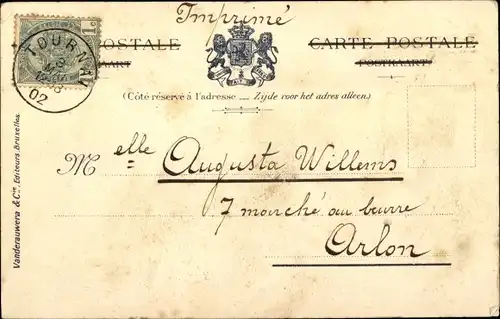 Imprimé
POSTALE CARTE POSTALE
POSTKAART
1c
TOURNAI
02
(Côté réservé à l'adresse — Zijde voor het adres alleen.)
M elle Augusta Willems
7 marché au beurre
Arlon
Vanderauwera & Cie, Editeurs Bruxelles.